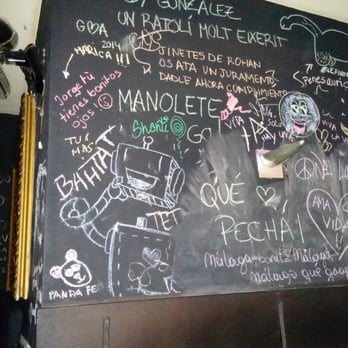 GONZALEZ
UN RATOLÍ MOLT EIXERIT
GOA
2014
MARICA!!!
JINETES DE ROHAN
OS ATA UN JURAMENTO
DADLE AHORA CUMPLIMIENTO
Jorge tú
tienes bonitos
ojos!!
MANOLETE
Shanti
TU
MAS
VITA
BAHIA
TET
QUÉ
PECHÁ!
AMA
VIDA
Málaga bonita Málaga
málaga que
PANDA FE